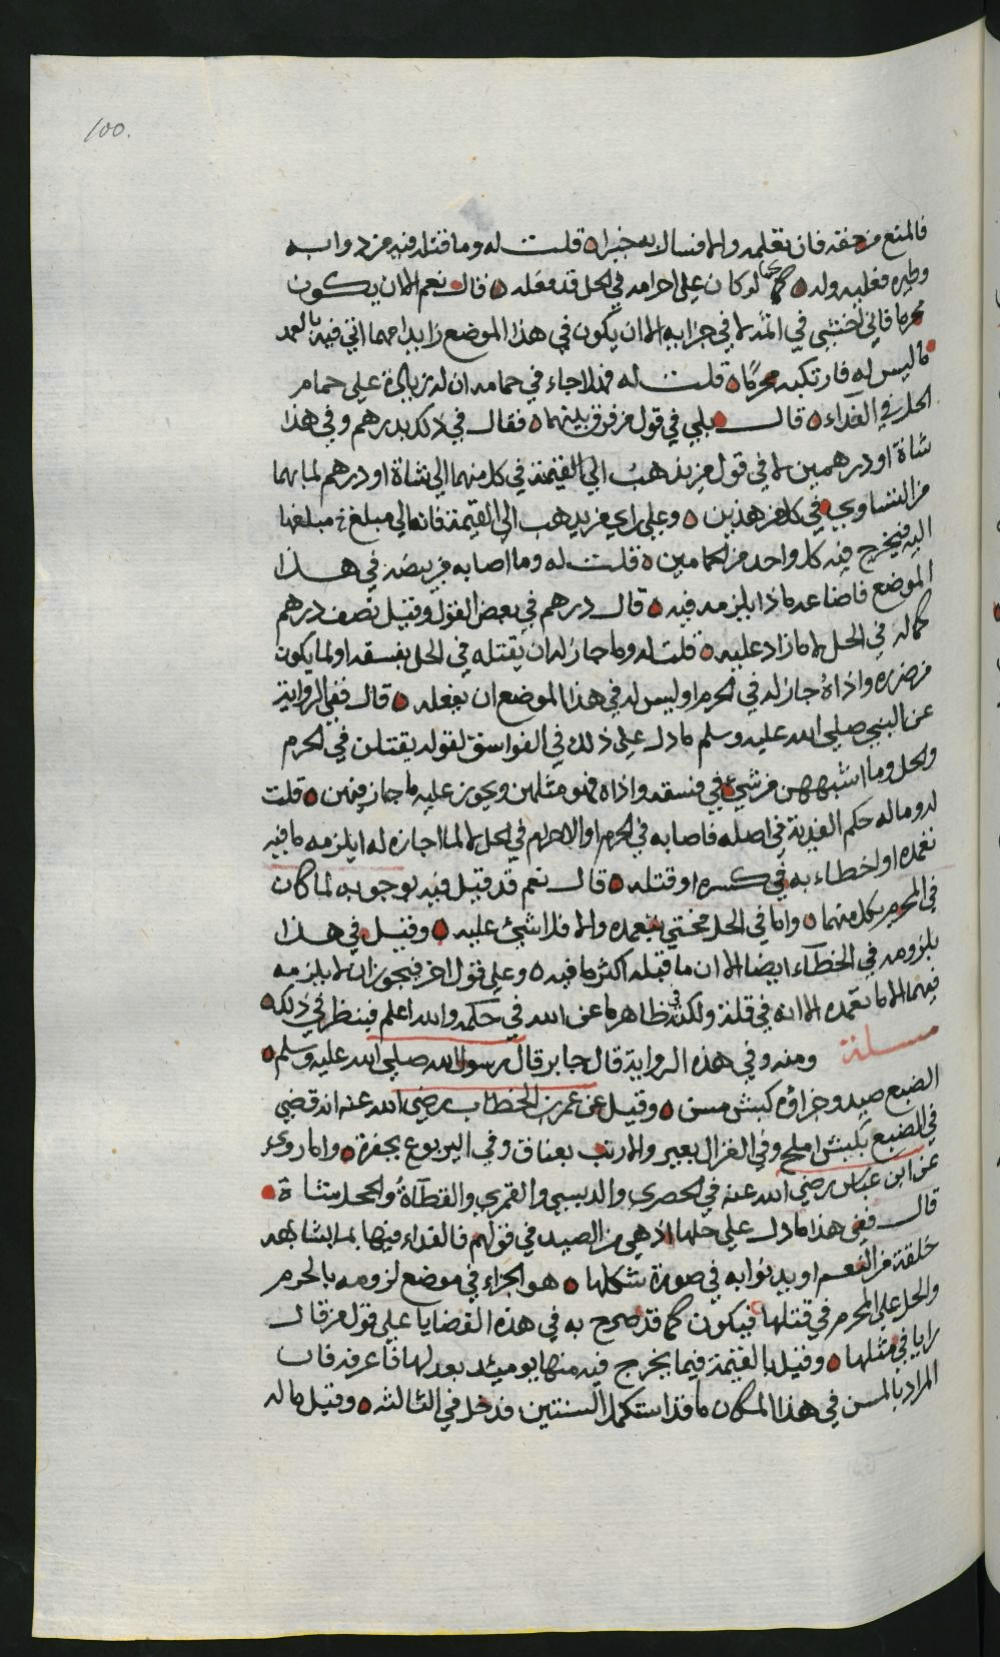 100.
فالمنع من حقه فان تعلمه والا فسال به خبيرا ه قلت له وما قتله فيه من دوابه
وطيره فعليه وله ه كما لو كان على احرامه في الحل قد فعله ه قال نعم الا ان يكون
محرما فاني اخشى في اثمه لا في جزايه الا ان يكون في هذا الموضع زايدا مهما اتى فيه بالعمد
ما ليس له فارتكبه محرما ه قلت له فهلا جاء في حمامه ان له زيادة على حمام
الحل في الفداء ه قال بلى في قول من فرق بينهما ه فقال في ذلك بدرهم وفي هذا
شاة او درهمين لا في قول من يذهب الى القيمة في كل منهما الى شاة او درهم لما بهما
من التساوي في كل من هذين ه وعلى راي من يذهب الى القيمة فانه الى مبلغ مبلغها
اليه فيخرج فيه كل واحد من الحمامين ه قلت له وما اصابه من بيضه في هذا
الموضع فاضاعه ماذا يلزمه فيه ه قال درهم في بعض القول وقيل نصف درهم
كماله في الحل لا ما زاد عليه ه قلت له وما جاز له ان يقتله في الحل بفسقه او لما يكون
من ضرره واذاه جاز له في الحرم او ليس له في هذا الموضع ان يفعله ه قال ففي الرواية
عن النبي صلى الله عليه وسلم ما دل على ذلك في الفواسق لقوله يقتلن في الحرم
والحل وما اشبههن من شيء في فسقه واذاه فهو مثلهن ويجوز عليه ما جاز فيهن ه قلت
له وما له حكم الفدية في اصله فاصابه في الحرم او الاحرام في الحل لا لما اجازه له ايلزمه ما فيه
تعمده او اخطاء به في كسره او قتله ه قال نعم قد قيل فيه بوجوبه لما كان
في المحرم بكل منهما ه واما في الحل فحتى يتعمده والا فلا شيء عليه ه وقيل في هذا
بلزومه في الخطاء ايضا الا ان ما قبله اكثر ما فيه ه وعلى قول اخر فيجوز ان لا يلزمه
فيهما الا ما تعمده الا انه في قلة ولكنه في ظاهر ما عن الله في حكمه والله اعلم فينظر في ذلك ه
مسئلة ومنه وفي هذه الرواية قال جابر قال رسول الله صلى الله عليه وسلم ه
الضبع صيد وجزاؤه كبش مسن ه وقيل عن عمر بن الخطاب رضي الله عنه انه قضى
في الضبع بكبش املح وفي الغزال بعير والارنب بعناق وفي اليربوع بجفرة ه واما روي
عن ابن عباس رضي الله عنه في الحصري والدبسي والقمري والقطاة والحجل شاة ه
قال ففي هذا ما دل على حلها اذ هي من الصيد في قولهم فالفداء فيها بما يشابهه
خلقة من النعم او يدنوا به في صورة شكلها ه هو الجزاء في موضع لزومه بالحرم
والحل على المحرم في قتلها فيكون كما قد صرح به في هذه القضايا على قول من قال
رايا في مثلها ه وقيل بالقيمة فيما يخرج فيه منها يومئذ بعدلها فاعرفه فان
المراد بالمسن في هذا المكان ما قد استكمل السنتين فدخل في الثالثه ه وقيل ما له